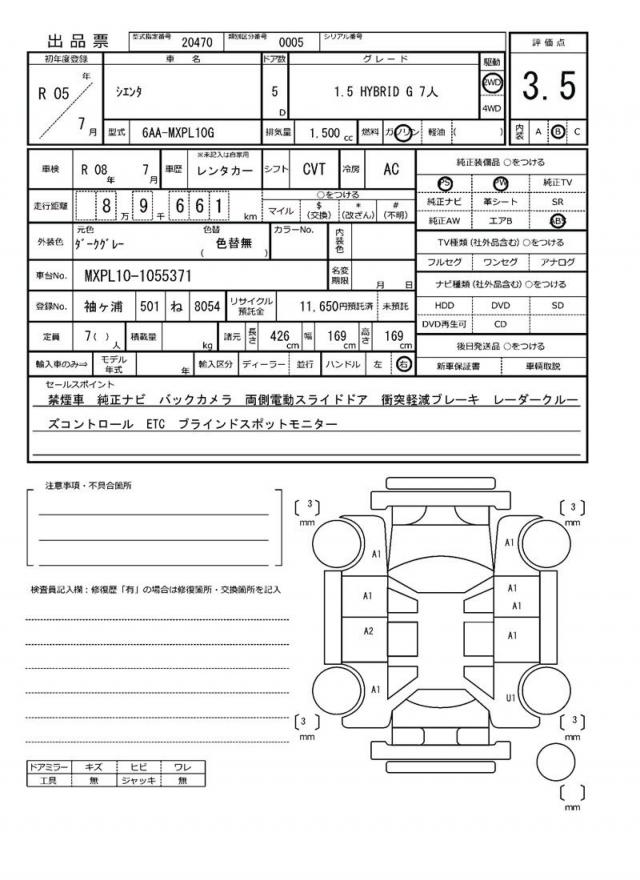 出品票 型式指定番号 20470 類別区分番号 0005 シリアル番号
評価点
3.5
内装 A B C
初年度登録 車名 ドア数 グレード 駆動
R 05 年 7 月 シエンタ 5 D 1.5 HYBRID G 7人 2WD 4WD
型式 6AA-MXPL10G 排気量 1.500 cc 燃料 ガソリン 軽油 ( )
車検 R 08 年 7 月 車歴 ※未記入は自家用 レンタカー シフト CVT 冷房 AC
走行距離 8 万 9 千 6 6 1 km ○をつける マイル $ (交換) * (改ざん) # (不明)
外装色 元色 ダークグレー 色替 ( 色替無 ) カラーNo. 内装色
車台No. MXPL10-1055371 名変期限 月 日
登録No. 袖ヶ浦 501 ね 8054 リサイクル預託金 11,650円預託済 未預託
定員 7( ) 人 積載量 kg 諸元 長さ 426 cm 幅 169 cm 高さ 169 cm
輸入車のみ⇒ モデル年式 年 輸入区分 ディーラー 並行 ハンドル 左 右
純正装備品 ○をつける
PS PW 純正TV
純正ナビ 革シート SR
純正AW エアB ABS
TV種類 (社外品含む) ○をつける
フルセグ ワンセグ アナログ
ナビ種類 (社外品含む) ○をつける
HDD DVD SD
DVD再生可 CD
後日発送品 ○をつける
新車保証書 車輌取説
セールスポイント
禁煙車 純正ナビ バックカメラ 両側電動スライドドア 衝突軽減ブレーキ レーダークルー
ズコントロール ETC ブラインドスポットモニター
注意事項・不具合箇所
検査員記入欄：修復歴「有」の場合は修復箇所・交換箇所を記入
ドアミラー キズ ヒビ ワレ
工具 無 ジャッキ 無
[ 3 ] mm
[ 3 ] mm
A1 A1
A1 A1
A1
A2 A1
A1 U1
[ 3 ] mm
[ 3 ] mm
[ ] mm